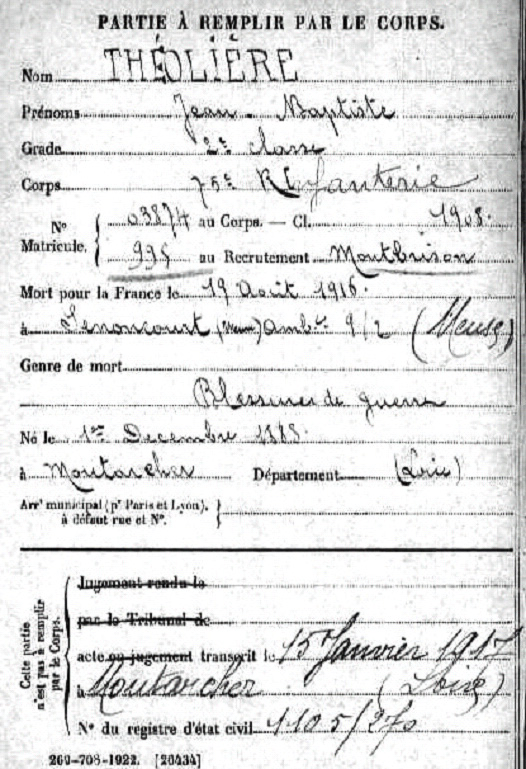 PARTIE À REMPLIR PAR LE CORPS.
Nom THÉOLIÈRE
Prénoms Jean-Baptiste
Grade 2e classe
Corps 75e R Infanterie
N° Matricule. { 03874 au Corps. — Cl. 1908.
995 au Recrutement Montbrison
Mort pour la France le 19 Août 1916.
à Senoncourt (Meuse) Amb. 9/2 (Meuse)
Genre de mort
Blessures de guerre
Né le 1er Decembre 1888.
à Montarcher Département (Loire)
Arrt municipal (pr Paris et Lyon). }
à défaut rue et N°.
Cette partie n'est pas à remplir par le Corps.
Jugement rendu le
par le Tribunal de
acte ou jugement transcrit le 15 Janvier 1917
à Montarcher (Loire)
N° du registre d'état civil 1105/270
269-708-1922. [26434]